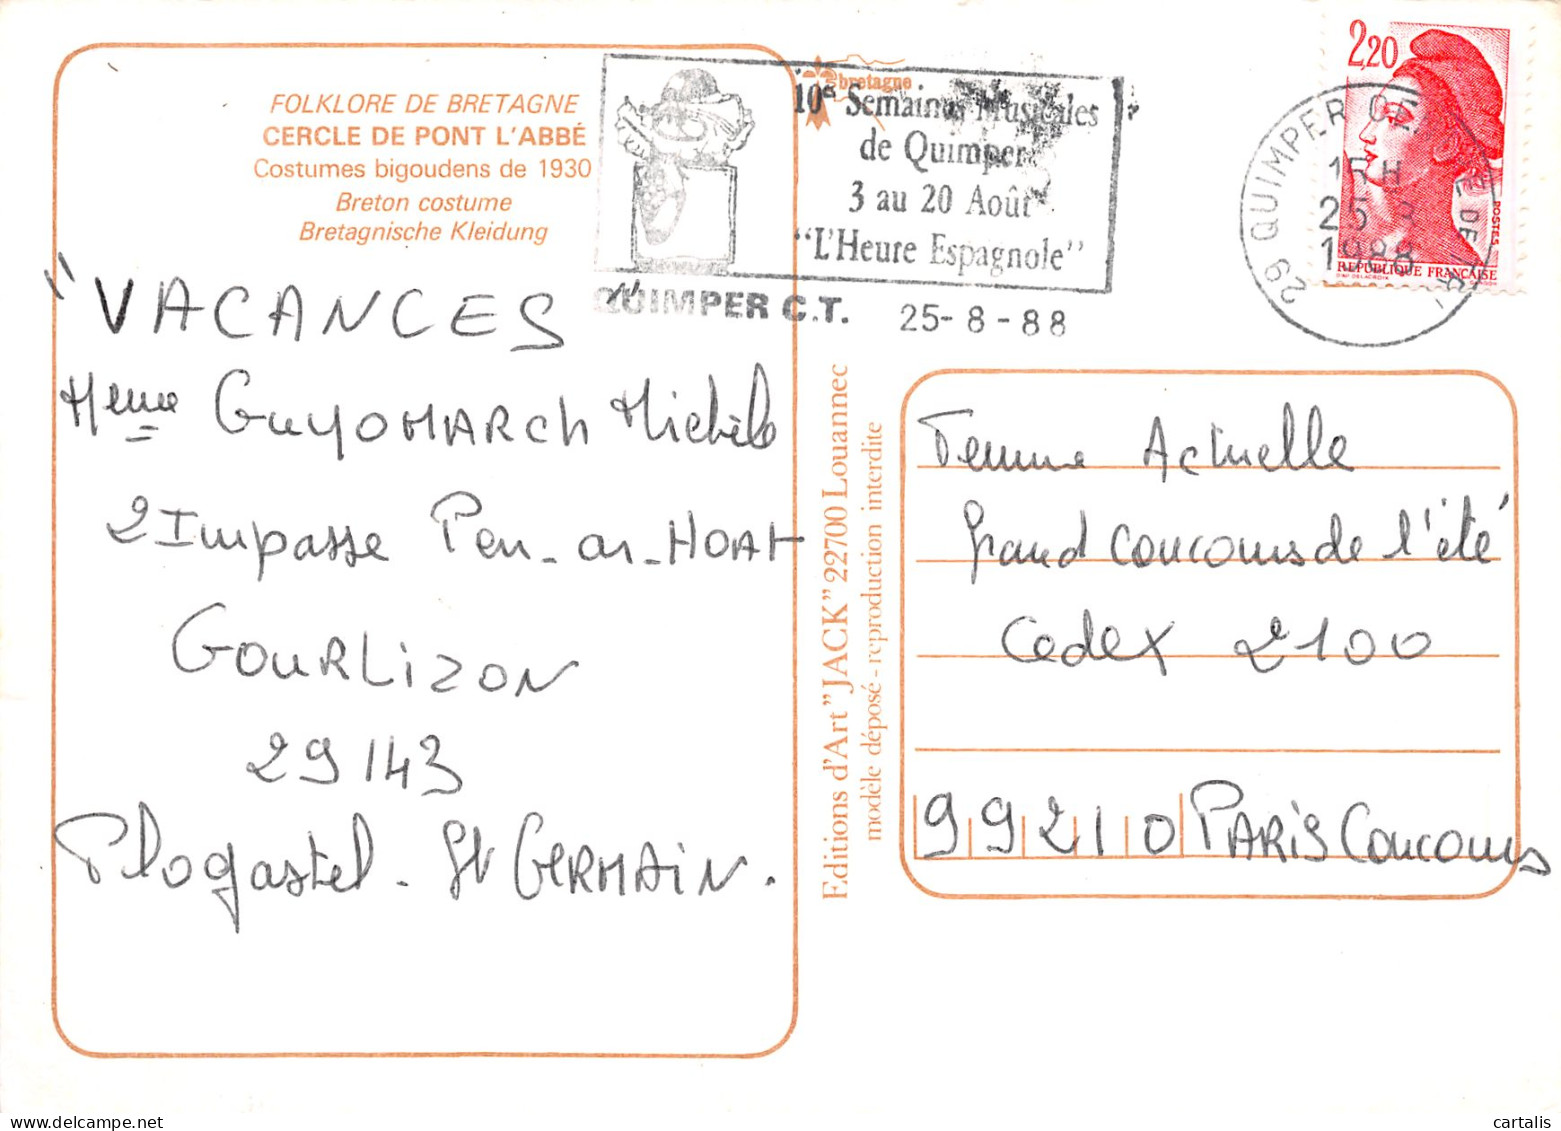 FOLKLORE DE BRETAGNE
CERCLE DE PONT L'ABBÉ
Costumes bigoudens de 1930
Breton costume
Bretagnische Kleidung
"VACANCES"
Mme GUYOMARCH Michèle
2 Impasse Pen-ar-HOAT
GOURLIZON
29143
Plogastel-St GERMAIN.
bretagne
10e Semaines Musicales
de Quimper
3 au 20 Août
"L'Heure Espagnole"
QUIMPER C.T. 25-8-88
29 QUIMPER
15H
25 8
1988
2,20
POSTES
REPUBLIQUE FRANÇAISE
Editions d'Art "JACK" 22700 Louannec
modèle déposé - reproduction interdite
Femme Actuelle
Grand Concours de l'été
Cedex 2100
99210 PARIS Concours
cartalis